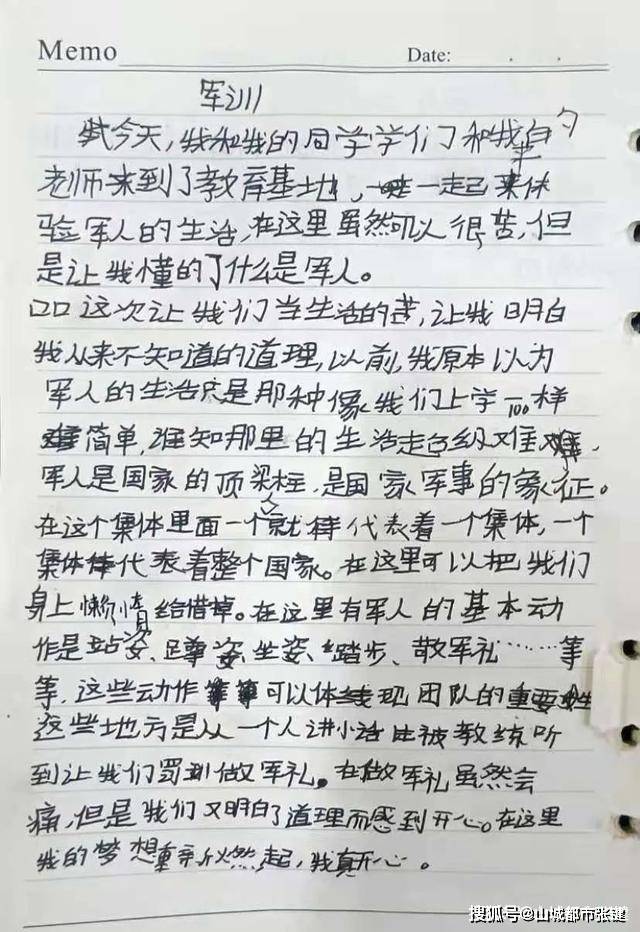 Memo Date: . .
军训
今天,我和我的同学学们和我的
老师来到了教育基地,一起来体
验军人的生活,在这里虽然可以很苦,但
是让我懂的了什么是军人。
这次让我们当生活的苦,让我明白
我从来不知道的道理,以前,我原本以为
军人的生活只是那种像我们上学一样
简单,谁知那里的生活超级难
军人是国家的顶梁柱,是国家军事的象征。
在这个集体里面一个人就代表着一个集体,一个
集体代表着整个国家。在这里可以把我们
身上懒惰给借掉。在这里有军人的基本动
作是站姿、蹲姿、坐姿、踏步、敬军礼……等
等,这些动作可以体现团队的重要性
这些地方是从一个人讲小话被教练听
到让我们罚做军礼。在做军礼虽然会
痛,但是我们又明白了道理而感到开心。在这里
我的梦想重新燃起,我真开心。
搜狐号@山城都市张建